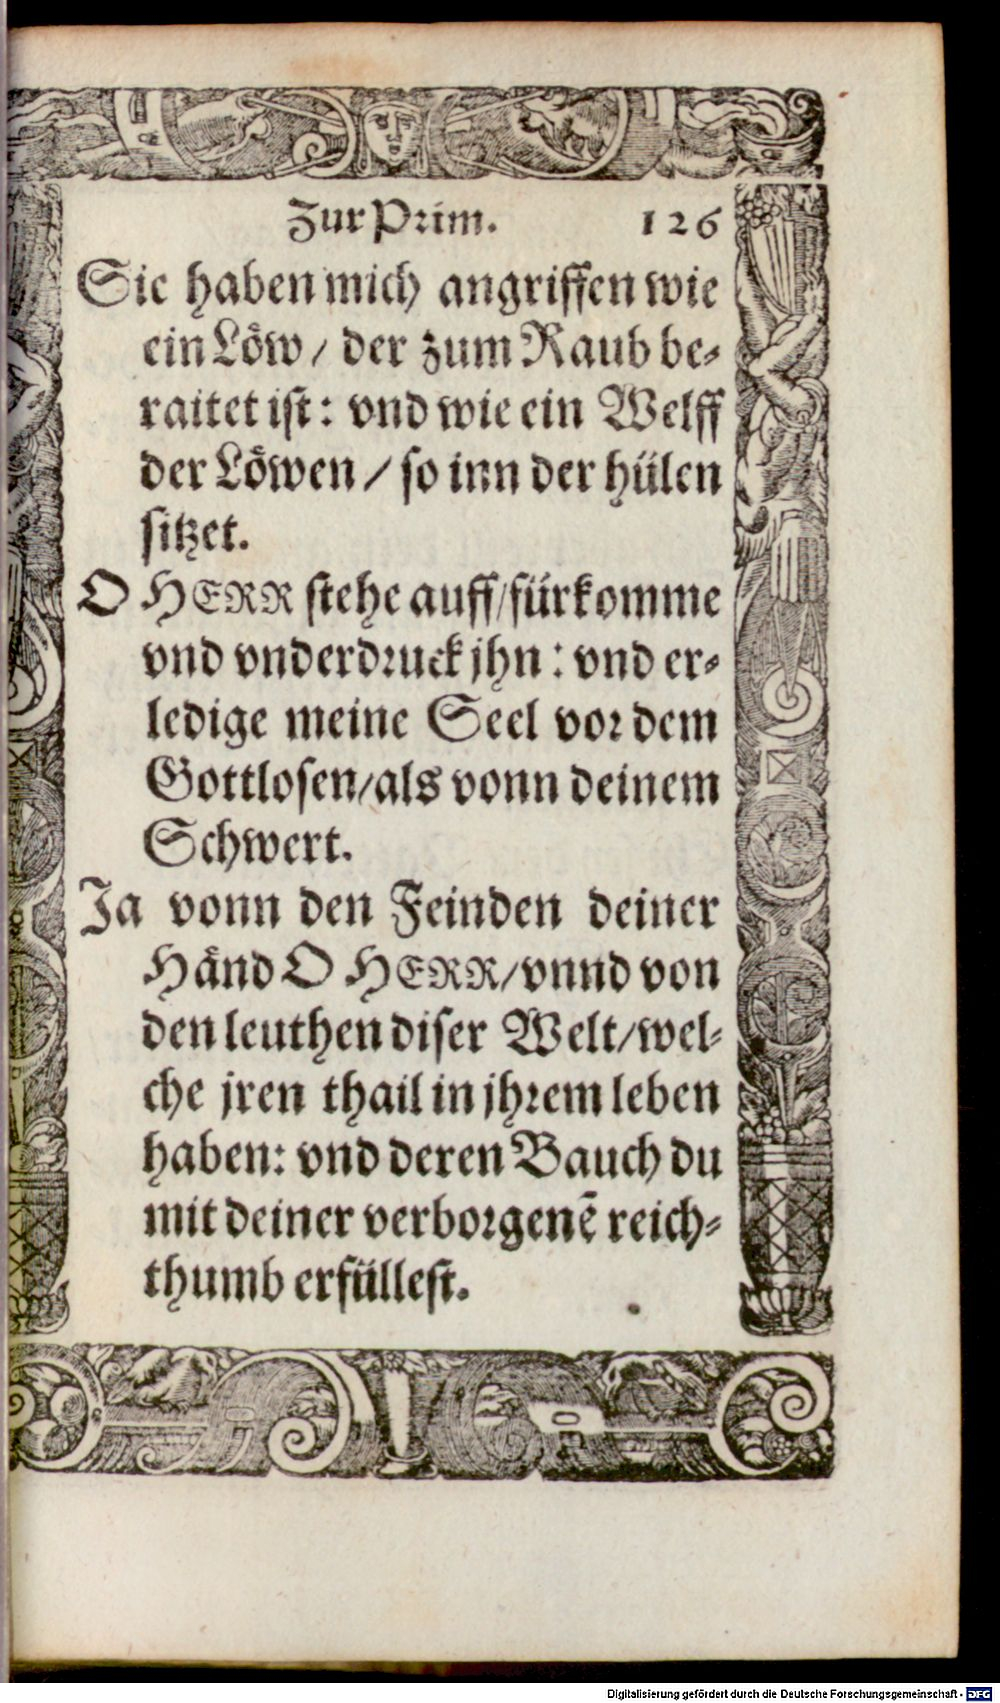 Zur Prim. 126
Sie haben mich angriffen wie
ein Löw / der zum Raub be-
raitet ist: vnd wie ein Welff
der Löwen / so inn der hülen
sitzet.
O HERR stehe auff / fürkomme
vnd vnderdruck jhn: vnd er-
ledige meine Seel vor dem
Gottlosen / als vonn deinem
Schwert.
Ja vonn den Feinden deiner
Händ O HERR / vnnd von
den leuthen diser Welt / wel-
che jren thail in jhrem leben
haben: vnd deren Bauch du
mit deiner verborgenē reich-
thumb erfüllest.
Digitalisierung gefördert durch die Deutsche Forschungsgemeinschaft - DFG